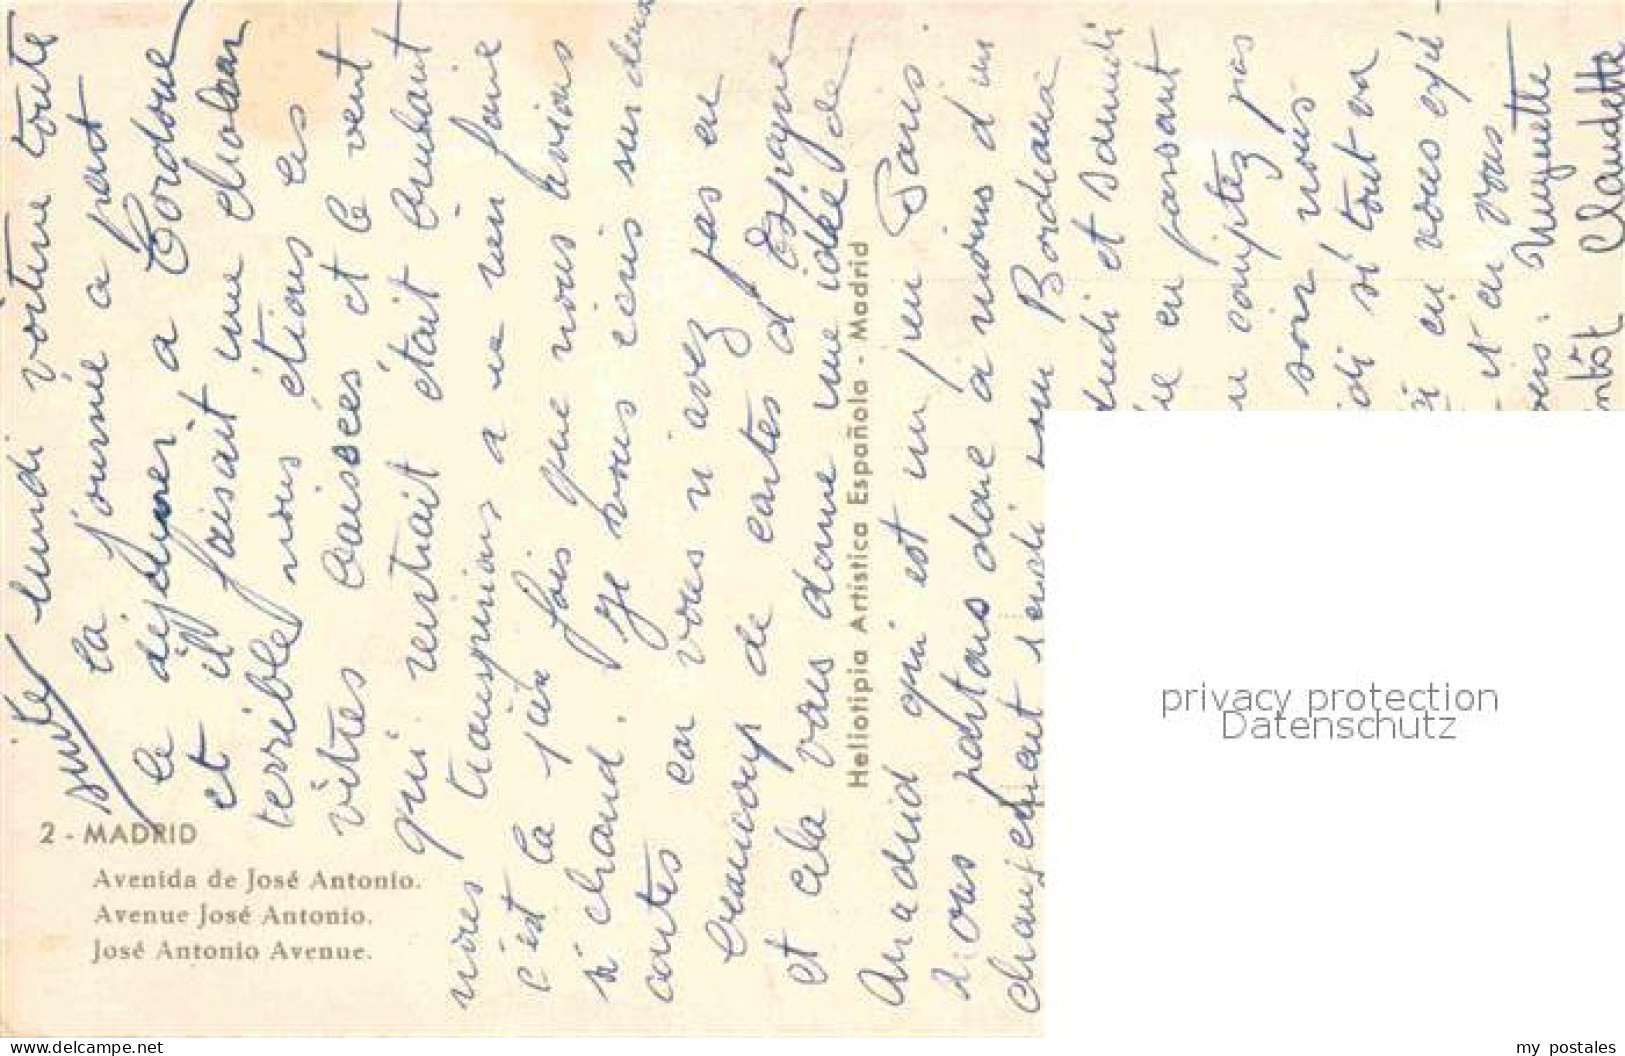 suite lundi voiture toute
la journée a part
le déjeuner a Cordoue
et il faisait une chaleur
terrible nous étions les
vitres baissées et le vent
qui rentrait était brulant
nous transpirions a ne rien faire
c'est la 1ère fois que nous avions
si chaud. Je vous écris sur deux
cartes car vous n'avez pas eu
beaucoup de cartes d'Espagne
et cela vous donne une idée de
Madrid qui est un peu Paris.
nous partons donc à moins d'un
changement lundi pour Bordeaux
dredi et samedi
en passant
comptez pas
soir nous
di si tout va
ci en vous
et en vous
Muguette
ntôt Claudette
Heliotipia Artística Española - Madrid
2 - MADRID
Avenida de José Antonio.
Avenue José Antonio.
José Antonio Avenue.
privacy protection
Datenschutz
www.delcampe.net
my_postales